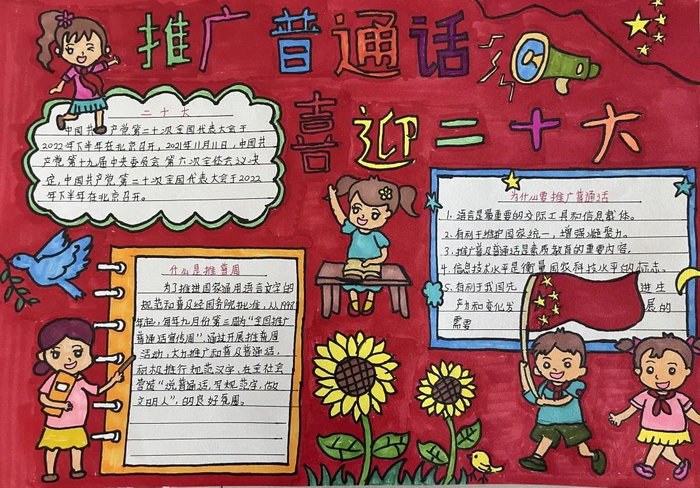 推广普通话
喜迎二十大
二十大
中国共产党第二十次全国代表大会于
2022年下半年在北京召开。2021年11月11日,中国共
产党第十九届中央委员会第六次全体会议决
定,中国共产党第二十次全国代表大会于2022
年下半年在北京召开。
什么是推普周
为了推进国家通用语言文字的
规范和普及经国务院批准,从1998
年起,每年九月份第三周为“全国推广
普通话宣传周”,通过开展推普周
活动,大力推广和普及普通话,
积极推行规范汉字,在全社会
营造“说普通话,写规范字,做
文明人”,的良好氛围。
为什么要推广普通话
1. 语言是最重要的交际工具和信息载体。
2. 有利于维护国家统一,增强凝聚力。
3. 推广普及普通话是素质教育的重要内容。
4. 信息技术水平是衡量国家科技水平的标志。
5. 有利于我国先进生
产力和变化发展的
需要